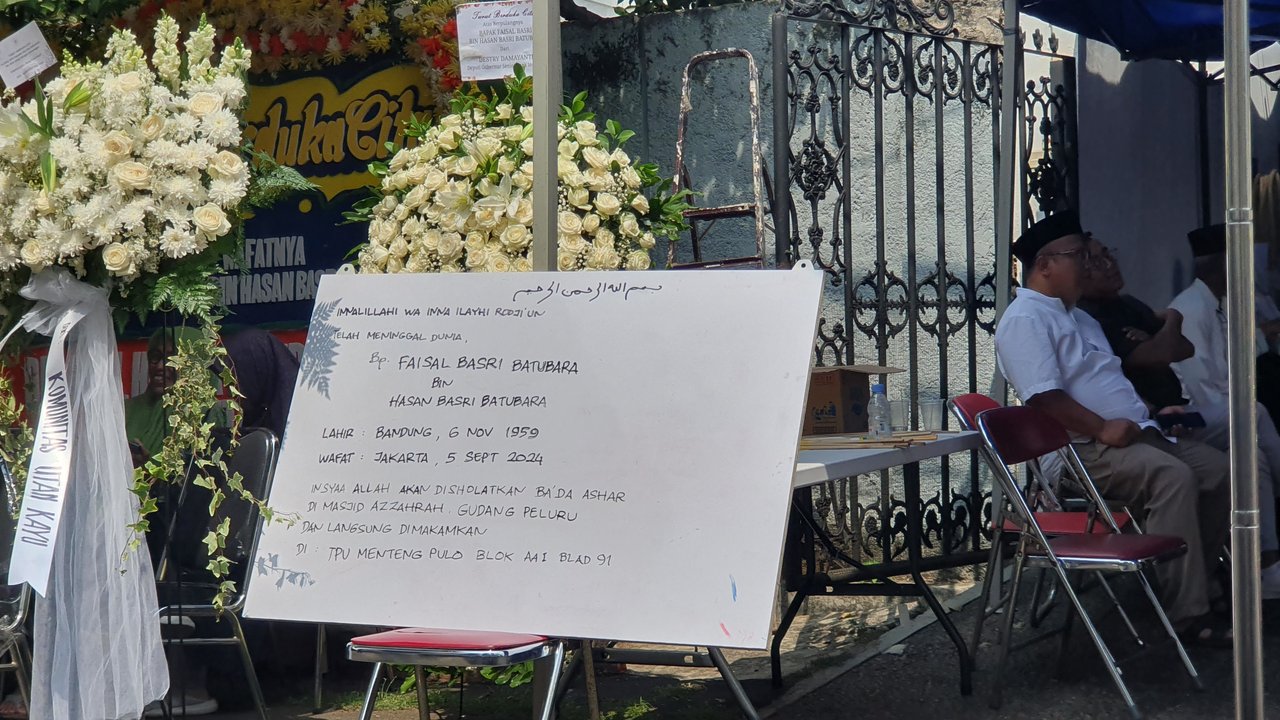 Turut Berduka Cita
Atas Berpulangnya
BAPAK FAISAL BASRI
BIN HASAN BASRI BATUB
Dari
DESTRY DAMAYANT
Deputi Gubernur Sen
duka Cita
AFATNYA
BIN HASAN BAS
KOMUNITAS UTAN KAYU
بسم الله الرحمن الرحيم
INNALILLAHI WA INNA ILAYHI RODJI'UN
TELAH MENINGGAL DUNIA,
Bp. FAISAL BASRI BATUBARA
BIN
HASAN BASRI BATUBARA
LAHIR : BANDUNG, 6 NOV 1959
WAFAT : JAKARTA, 5 SEPT 2024
INSYAA ALLAH AKAN DISHOLATKAN BA'DA ASHAR
DI MASJID AZZAHRAH : GUDANG PELURU
DAN LANGSUNG DIMAKAMKAN
DI : TPU MENTENG PULO BLOK AA I BLAD 91